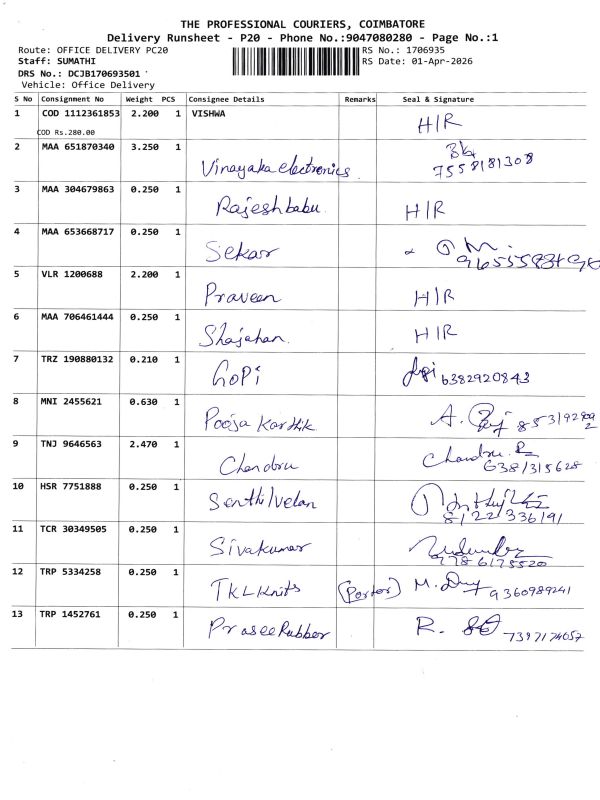 THE PROFESSIONAL COURIERS, COIMBATORE
Delivery Runsheet - P20 - Phone No.:9047080280 - Page No.:1
Route: OFFICE DELIVERY PC20
RS No.: 1706935
Staff: SUMATHI
RS Date: 01-Apr-2026
DRS No.: DCJB170693501
Vehicle: Office Delivery
S No Consignment No Weight PCS Consignee Details Remarks Seal & Signature
1 COD 1112361853 2.200 1 VISHWA H/R
COD Rs.280.00
2 MAA 651870340 3.250 1 Vinayaka electronics 7558181308
3 MAA 304679863 0.250 1 Rajeshbabu H/R
4 MAA 653668717 0.250 1 Sekar
5 VLR 1200688 2.200 1 Praveen H/R
6 MAA 706461444 0.250 1 Shajahan. H/R
7 TRZ 190880132 0.210 1 GoPi 6382920843
8 MNI 2455621 0.630 1 Pooja Karthik A.
9 TNJ 9646563 2.470 1 Chandru Chandru. R
6381315628
10 HSR 7751888 0.250 1 Senthilvelan
8122336191
11 TCR 30349505 0.250 1 Sivakumar
9786175520
12 TRP 5334258 0.250 1 TKL Knits (Porter) M. 9360989241
13 TRP 1452761 0.250 1 Prasee Rubber R. 7397174057